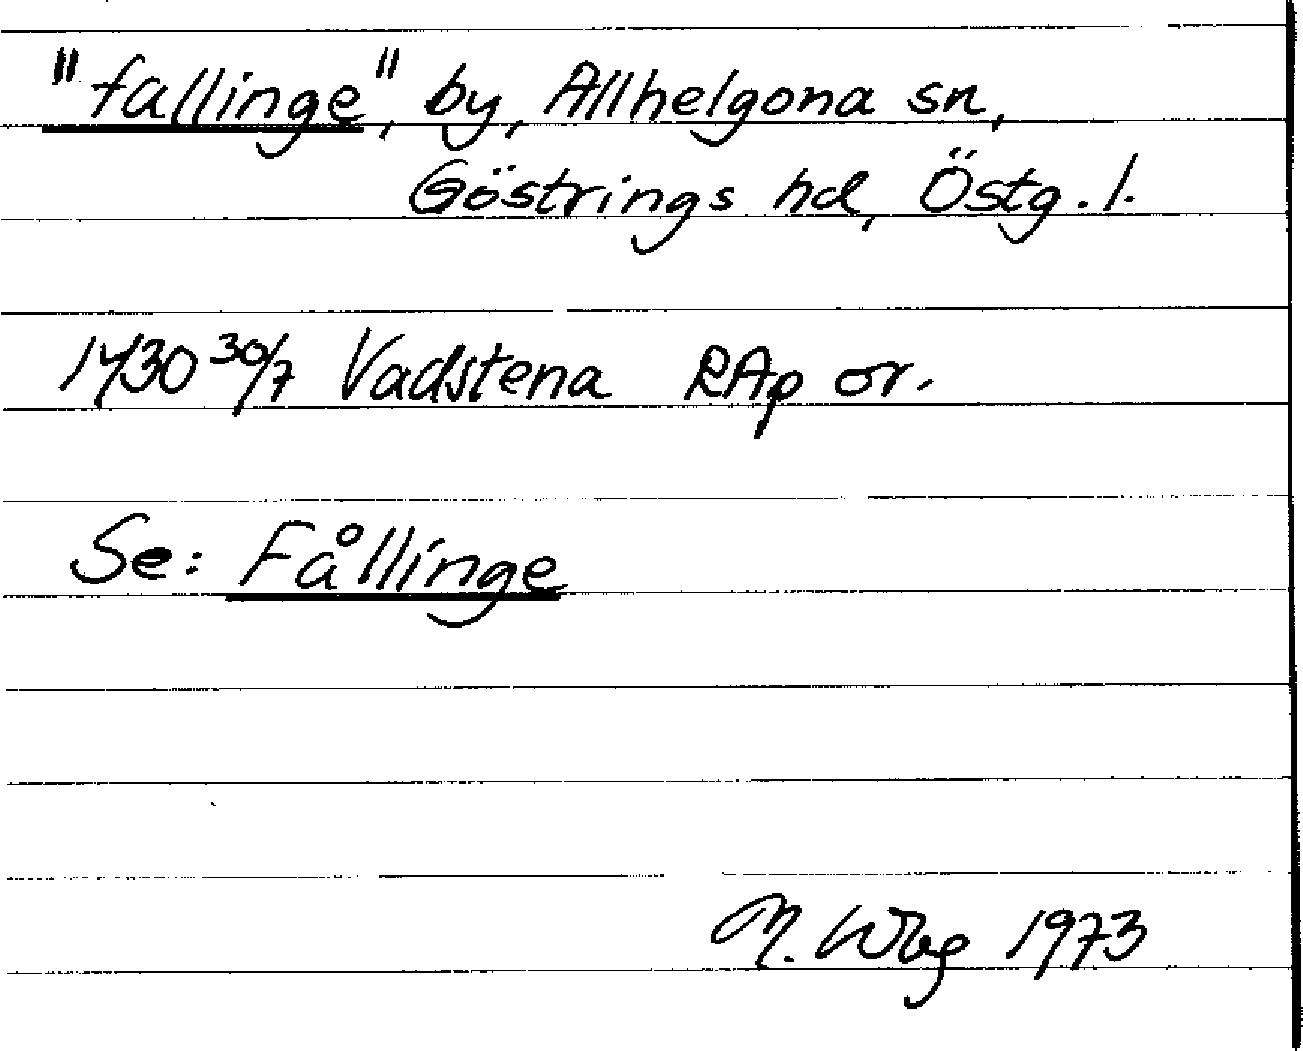 "fallinge", by, Allhelgona sn,
Göstrings hd, Östg. l.
1430 30/7 Vadstena RAp or.
Se: Fållinge
M. Wbg 1973